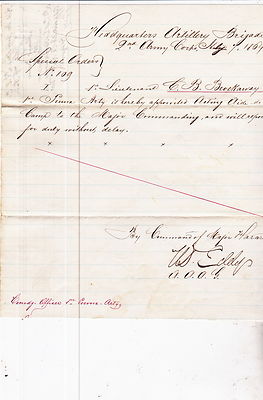 Headquarters Artillery Brigade
2nd Army Corps, May 7, 186
Special Orders
No. 109
I. 1st Lieutenant C. B. Brockway
1st Penna Arty is hereby appointed Acting Aide de
Camp to the Major Commanding, and will report
for duty without delay.
x x x x
By Command of Major Hazard
U. D. Eddy
A. A. A. G.
Comdg. Officer 1st Penna Arty